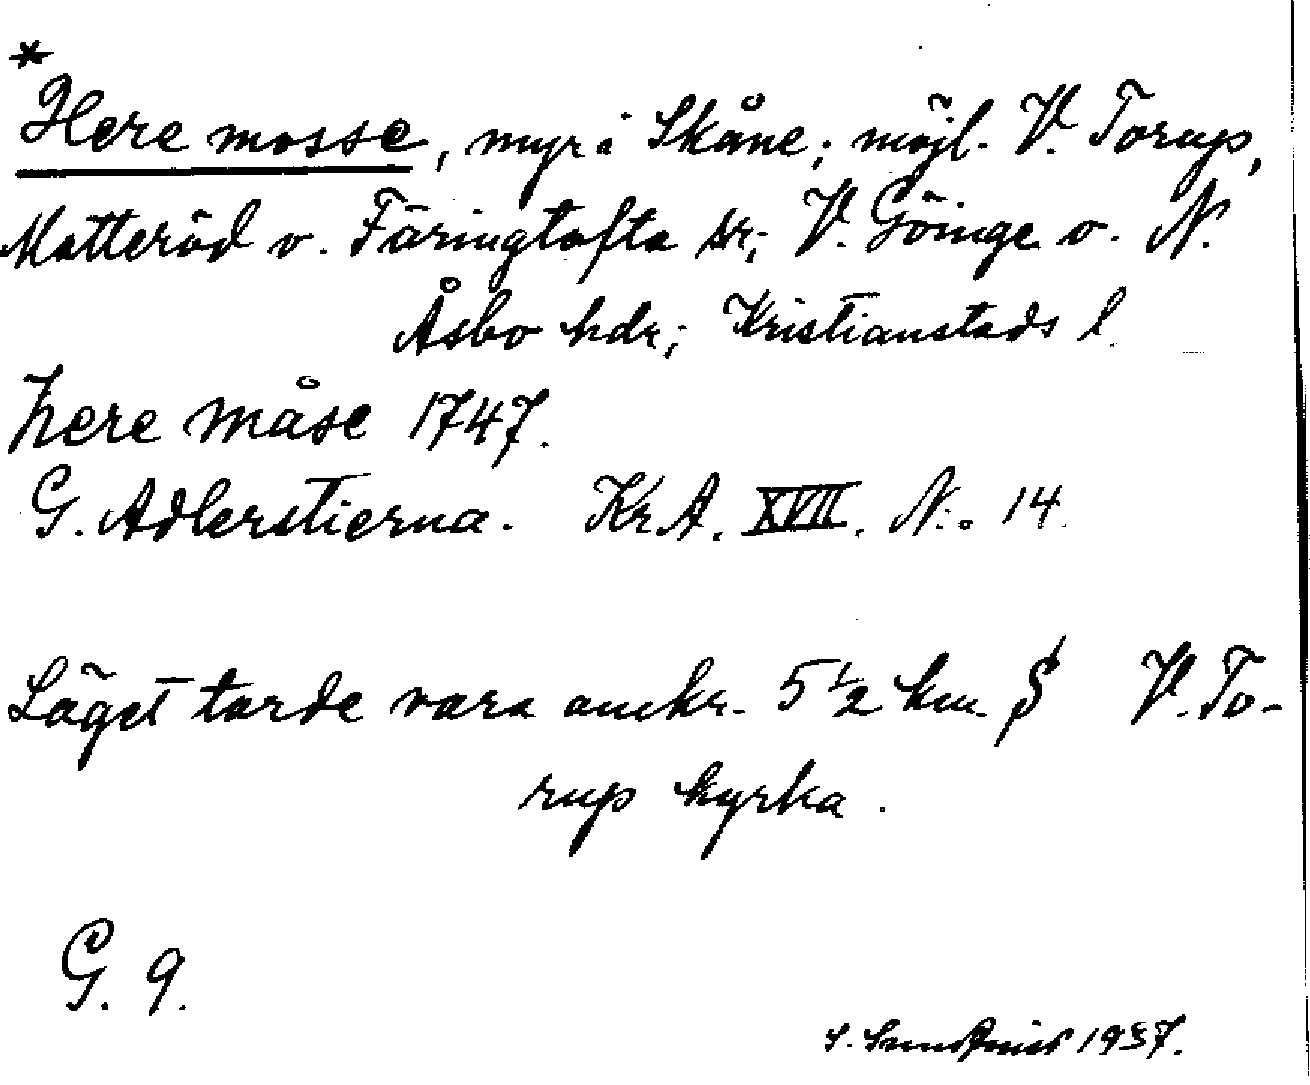 *
Here mosse, myr i Skåne; möjl. V. Torup,
Matteröd o. Färingtofta sr; V. Göinge o. N.
Åsbo hdr; Kristianstads l.
here måse 1747.
G. Adlerstierna. KrA. XVII. N:o 14.
Läget torde vara omkr. 5 1/2 km S V. To-
rup kyrka.
G. 9.
S. Sundqvist 1937.